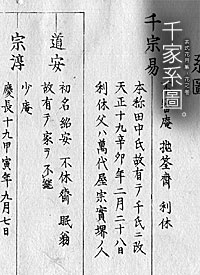 系圖
千家系圖。
千宗易
庵 抛筌齋 利休
本称田中氏故有テ千氏ニ改
天正十九辛卯年二月二十八日
利休父ハ萬代屋宗實堺ノ人
道安
初名紹安 不休齋 眠翁
故有テ家ヲ不継
宗淳
少庵
慶長十九甲寅年九月七日